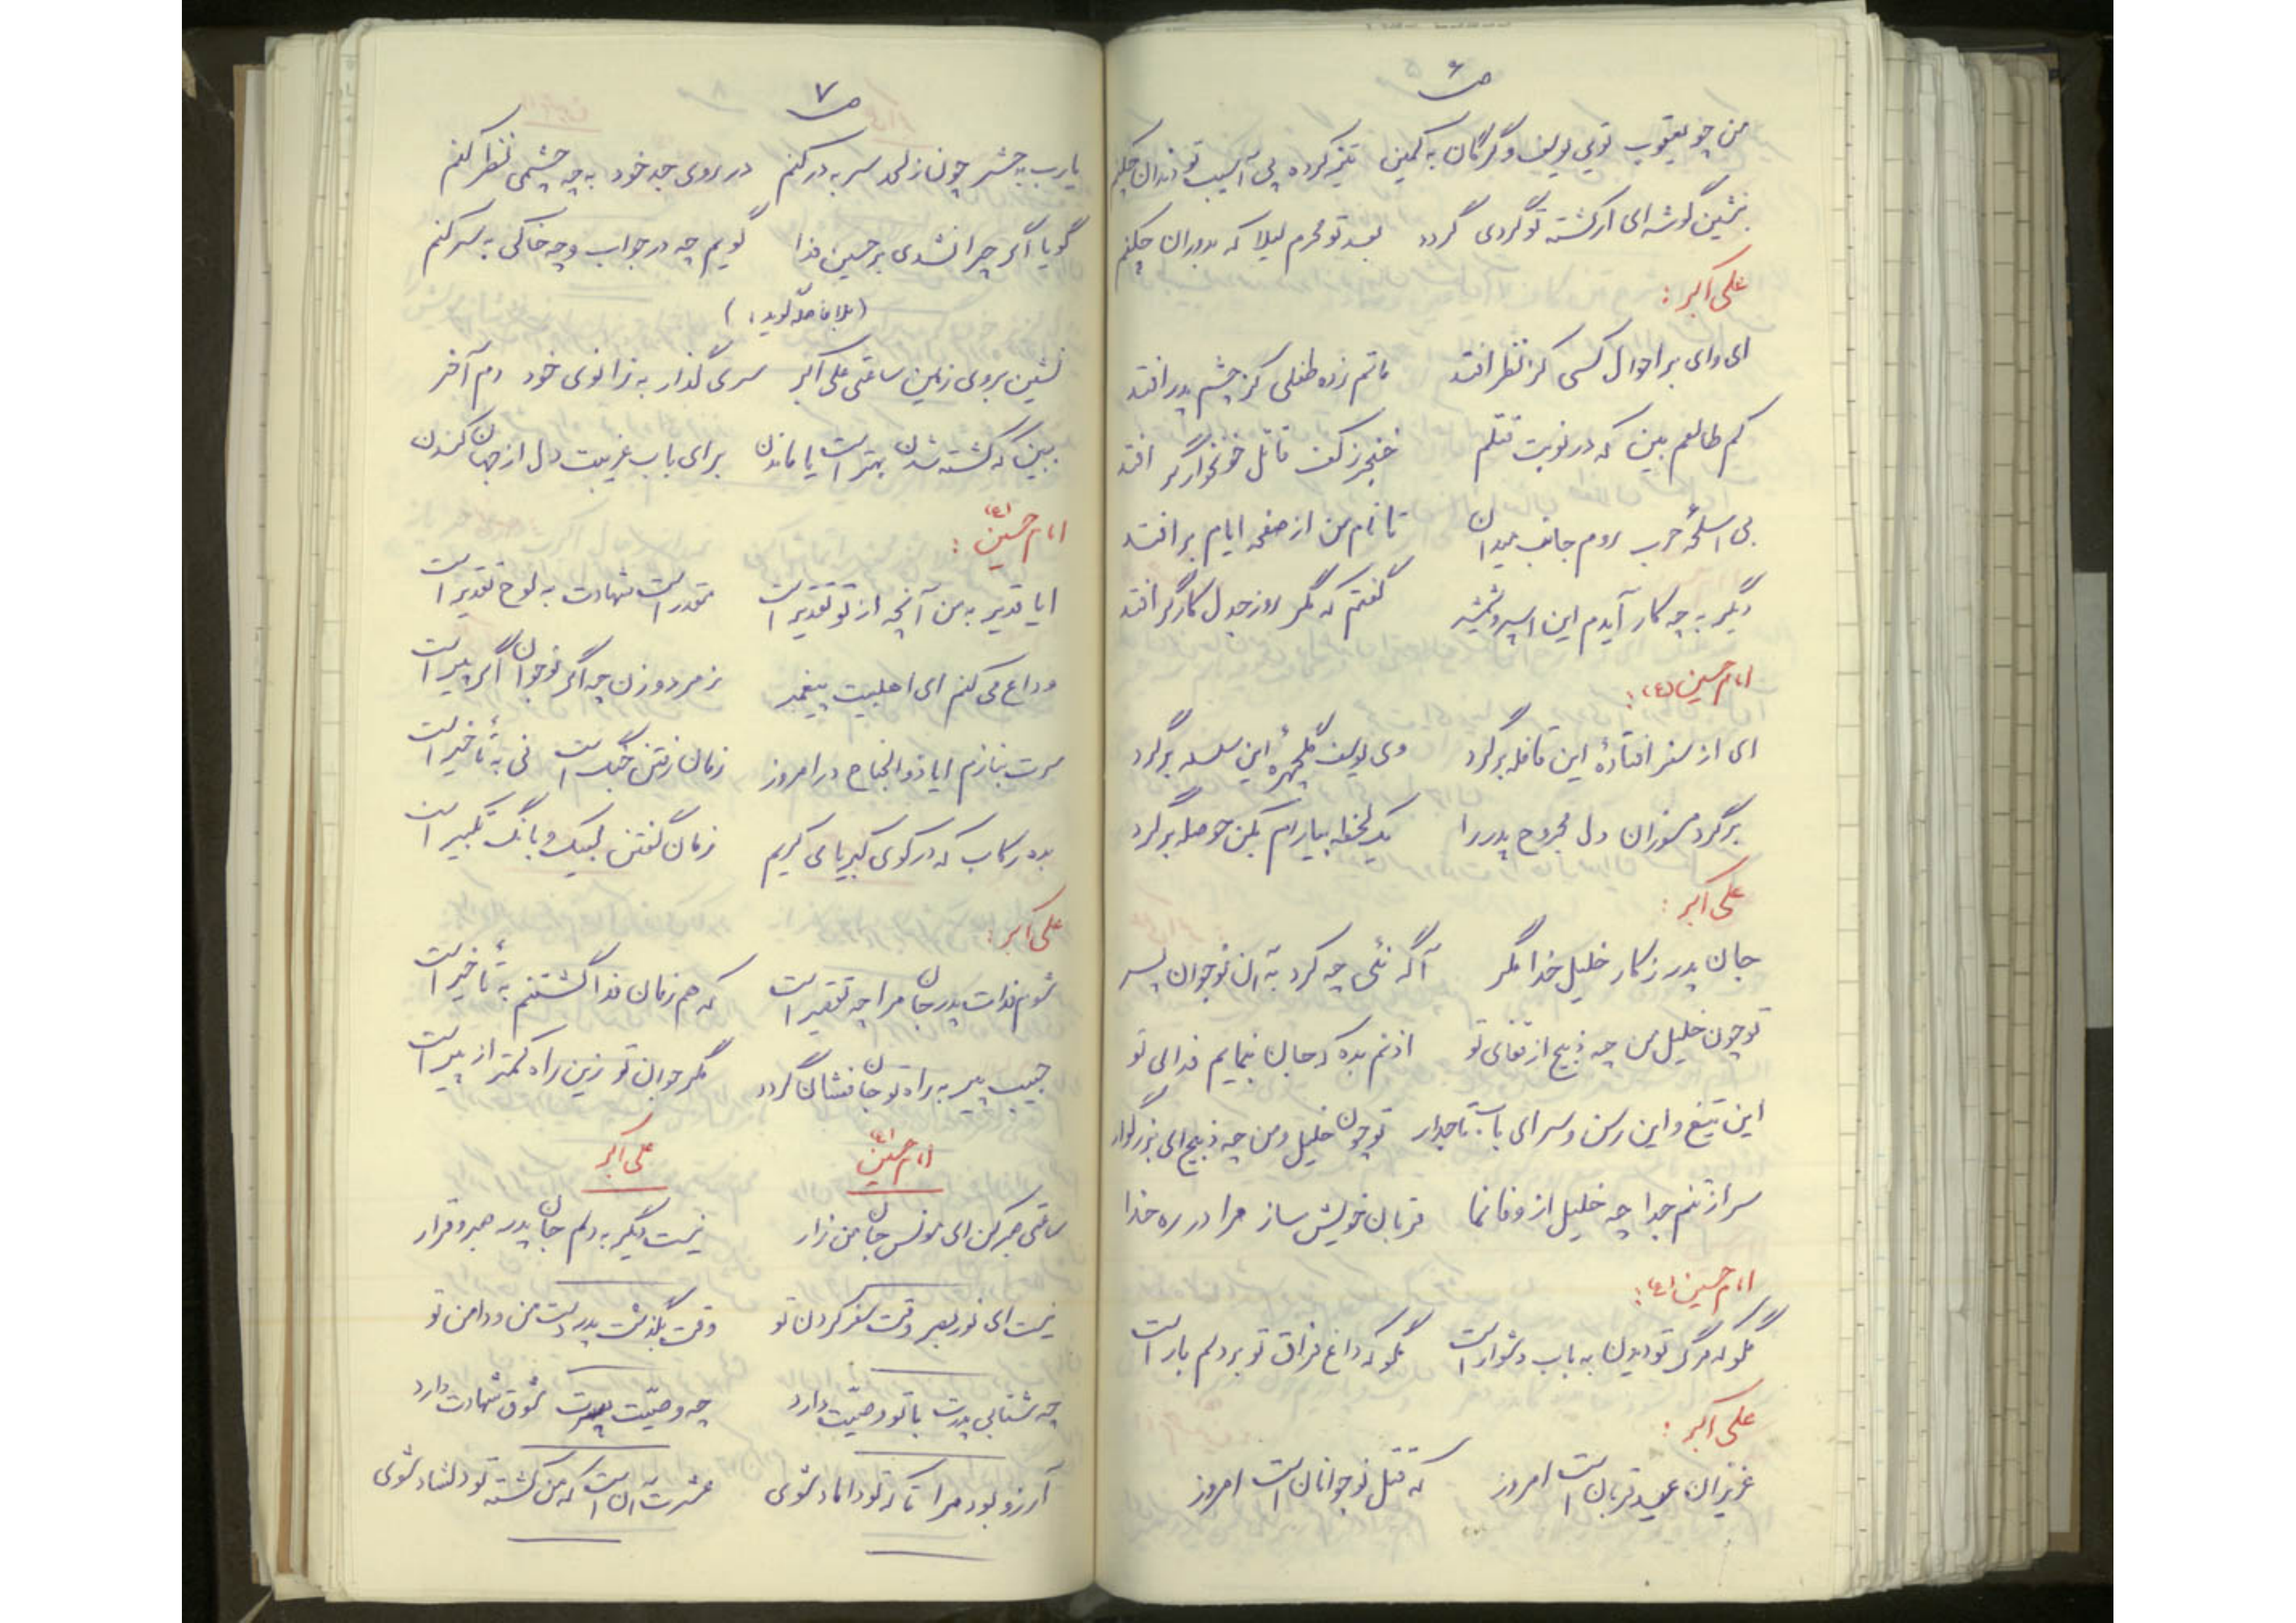 ص ۶
من چو یعقوب تویی یوسف و گرگان به کمین تیز کرده پی آسیب تو دندان چکنم
بنشین گوشه‌ای ار کشته تو گردی گردد بعد تو محرم لیلا که بدوران چکنم
علی اکبر :
ای وای بر احوال کسی کز نظر افتد ماتم زده طفلی کز چشم پدر افتد
کم طالعم بین که در نوبت قتلم خنجر ز کف قاتل خونخوار گر افتد
بی اسلحهٔ حرب روم جانب میدان تا نام من از صفحه ایام بر افتد
دیگر به چه کار آیدم این اسپر و شمشیر گفتم که مگر روز جدل کارگر افتد
امام حسین (ع) :
ای از سفر افتادهٔ این قافله برگرد وی یوسف گلچهرهٔ این سلسله برگرد
برگرد مسوزان دل مجروح پدر را یک لحظه بیارام بکن حوصله برگرد
علی اکبر :
جان پدر ز کار خلیل خدا مگر آگه نئی چه کرد به آن نوجوان پسر
تو چون خلیل من چه ذبیح از قفای تو اذنم بده که جان بنمایم فدای تو
این تیغ و این رسن و سر ای باب تاجدار تو چون خلیل و من چه ذبیح ای بزرگوار
سر از تنم جدا چه خلیل از وفا نما قربان خویش ساز مرا در ره خدا
امام حسین (ع) :
مگو که مرگ تو دیدن به باب دشوار است مگو که داغ فراق تو بر دلم بار است
علی اکبر :
عزیزان عید قربان است امروز که قتل نوجوانان است امروز
ص ۷
یارب به حشر چون ز لحد سر به در کنم در روی جد خود به چه چشمی نظر کنم
گویا اگر چرا نشدی بر حسین فدا گویم چه در جواب و چه خاکی به سر کنم
(بلافاصله گوید :)
نشین بروی زمین ساعتی علی اکبر سری گذار به زانوی خود دم آخر
ببین که کشته شدن بهتر است یا ماندن برای باب غریبت دل از جهان کندن
امام حسین (ع) :
ایا قدیر به من آنچه از تو تقدیر است مقدر است شهادت به لوح تقدیر است
وداع می کنم ای اهلبیت پیغمبر ز مرد و زن چه اگر نوجوان اگر پیر است
سرت بنازم ایا ذوالجناح در امروز زمان رفتن جنگ است نی به تأخیر است
بده رکاب که در کوی کبریا می کریم زمان گفتن لبیک و بانگ تکبیر است
علی اکبر :
شوم فدات پدر جان مرا چه تقصیر است که هم زمان فدا گشتنم به تأخیر است
حبیب پیر به راه تو جانفشان گردد مگر جوان تو زین راه کمتر از پیر است
امام حسین (ع) علی اکبر
ساعتی صبر کن ای مونس جان من زار نیست دیگر به دلم جان پدر صبر و قرار
نیست ای نور بصر وقت سفر کردن تو وقت بگذشت پدر دست من و دامن تو
چه شتابی پدرت با تو وصیّت دارد چه وصیّت پسرت شوق شهادت دارد
آرزو بود مرا تا که تو داماد شوی عشرت آن است که من کشته تو دلشاد شوی